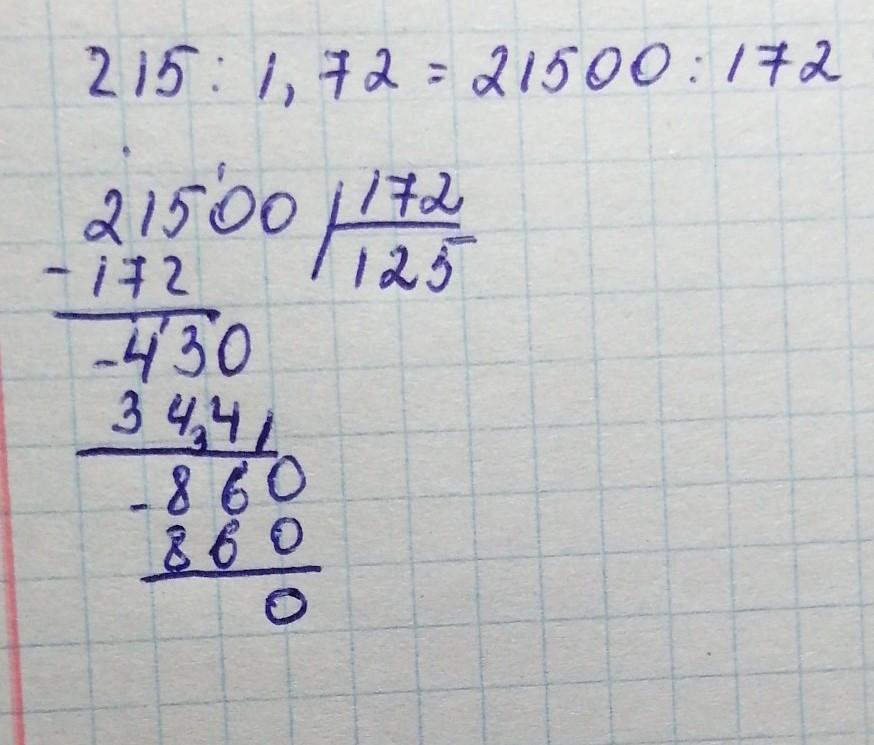 215 : 1,72 = 21500 : 172
21500 172
-172 125
-430
344
-860
860
0